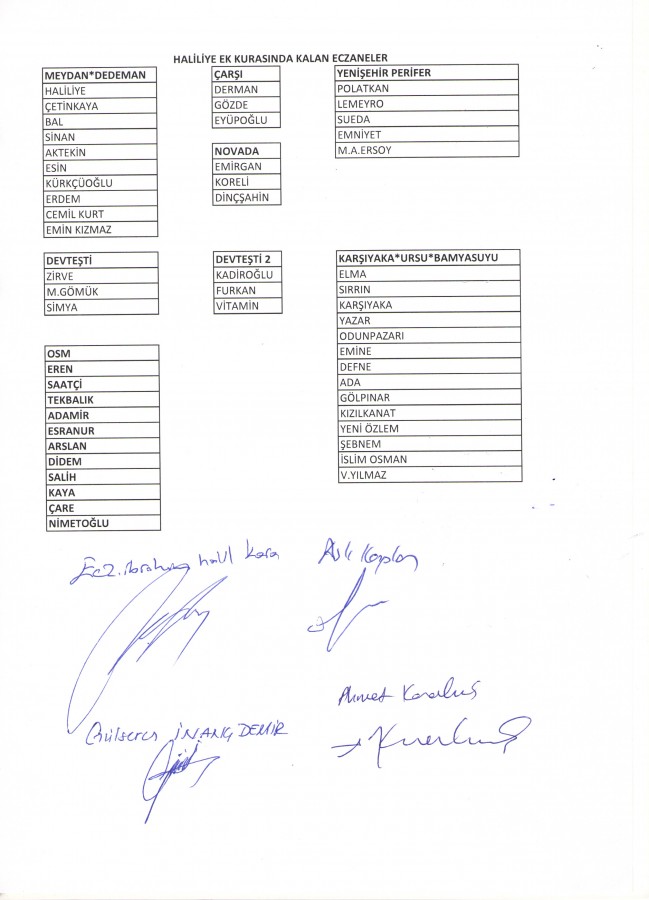 HALİLİYE EK KURASINDA KALAN ECZANELER
MEYDAN*DEDEMAN
HALİLİYE
ÇETİNKAYA
BAL
SİNAN
AKTEKİN
ESİN
KÜRKÇÜOĞLU
ERDEM
CEMİL KURT
EMİN KIZMAZ
ÇARŞI
DERMAN
GÖZDE
EYÜPOĞLU
NOVADA
EMİRGAN
KORELİ
DİNÇŞAHİN
YENİŞEHİR PERİFER
POLATKAN
LEMEYRO
SUEDA
EMNİYET
M.A.ERSOY
DEVTEŞTİ
ZİRVE
M.GÖMÜK
SİMYA
DEVTEŞTİ 2
KADİROĞLU
FURKAN
VİTAMİN
KARŞIYAKA*URSU*BAMYASUYU
ELMA
SIRRIN
KARŞIYAKA
YAZAR
ODUNPAZARI
EMİNE
DEFNE
ADA
GÖLPINAR
KIZILKANAT
YENİ ÖZLEM
ŞEBNEM
İSLİM OSMAN
V.YILMAZ
OSM
EREN
SAATÇİ
TEKBALIK
ADAMİR
ESRANUR
ARSLAN
DİDEM
SALİH
KAYA
ÇARE
NİMETOĞLU
Ecz. İbrahim halil Kara
Aslı Kaplan
Ahmet Karakuş
Gülseren İNANÇ DEMİR